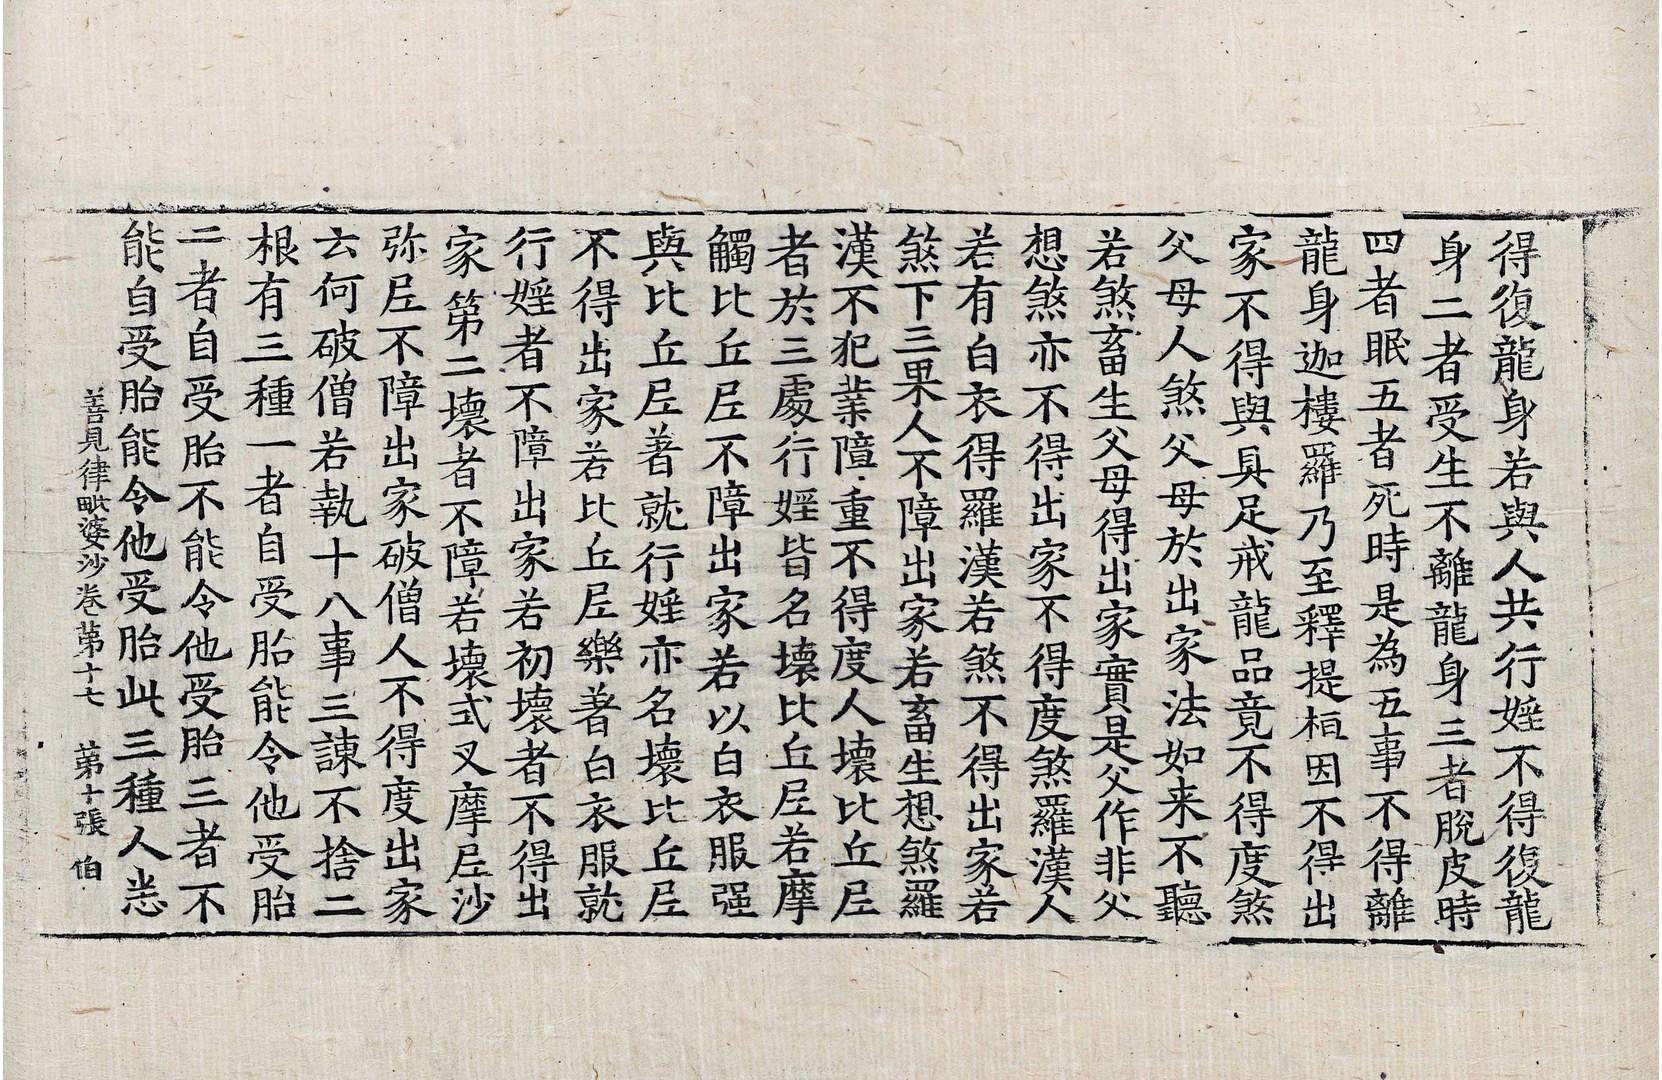 得復龍身若與人共行婬不得復龍
身二者受生不離龍身三者脫皮時
四者眠五者死時是為五事不得離
龍身迦樓羅乃至釋提桓因不得出
家不得與具足戒龍品竟不得度煞
父母人煞父母於出家法如来不聽
若煞畜生父母得出家實是父作非父
想煞亦不得出家不得度煞羅漢人
若有白衣得羅漢若煞不得出家若
煞下三果人不障出家若畜生想煞羅
漢不犯業障重不得度人壞比丘尼
者於三處行婬皆名壞比丘尼若摩
觸比丘尼不障出家若以白衣服强
與比丘尼著就行婬亦名壞比丘尼
不得出家若比丘尼樂著白衣服就
行婬者不障出家若初壞者不得出
家第二壞者不障若壞式叉摩尼沙
弥尼不障出家破僧人不得度出家
云何破僧若執十八事三諫不捨二
根有三種一者自受胎能令他受胎
二者自受胎不能令他受胎三者不
能自受胎能令他受胎此三種人悉
善見律毗婆沙卷第十七　第十張　伯